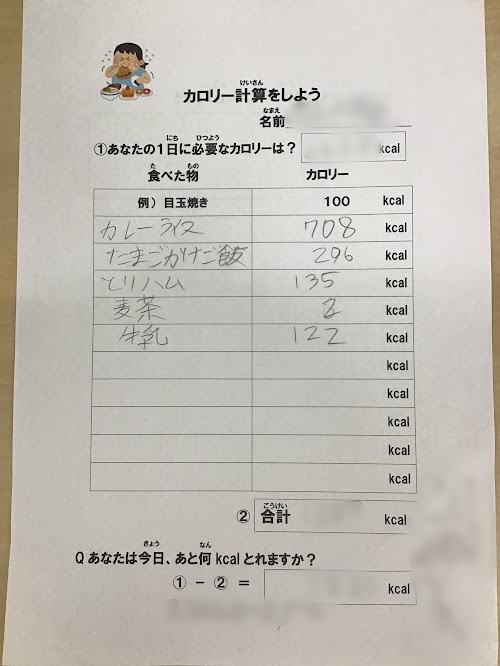 カロリー計算をしよう
名前
①あなたの1日に必要なカロリーは？ kcal
食べた物 カロリー
例）目玉焼き 100 kcal
カレーライス 708 kcal
たまごかけご飯 296 kcal
とりハム 135 kcal
麦茶 2 kcal
牛乳 122 kcal
kcal
kcal
kcal
kcal
kcal
② 合計 kcal
Q あなたは今日、あと何kcalとれますか？
① − ② ＝ kcal